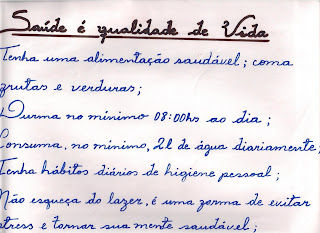 Saúde é qualidade de Vida
Tenha uma alimentação saudável; coma
frutas e verduras;
Durma no mínimo 08:00hs ao dia;
Consuma, no mínimo, 2l de água diariamente;
Tenha hábitos diários de higiene pessoal;
Não esqueça do lazer, é uma forma de evitar
stress e tornar sua mente saudável;